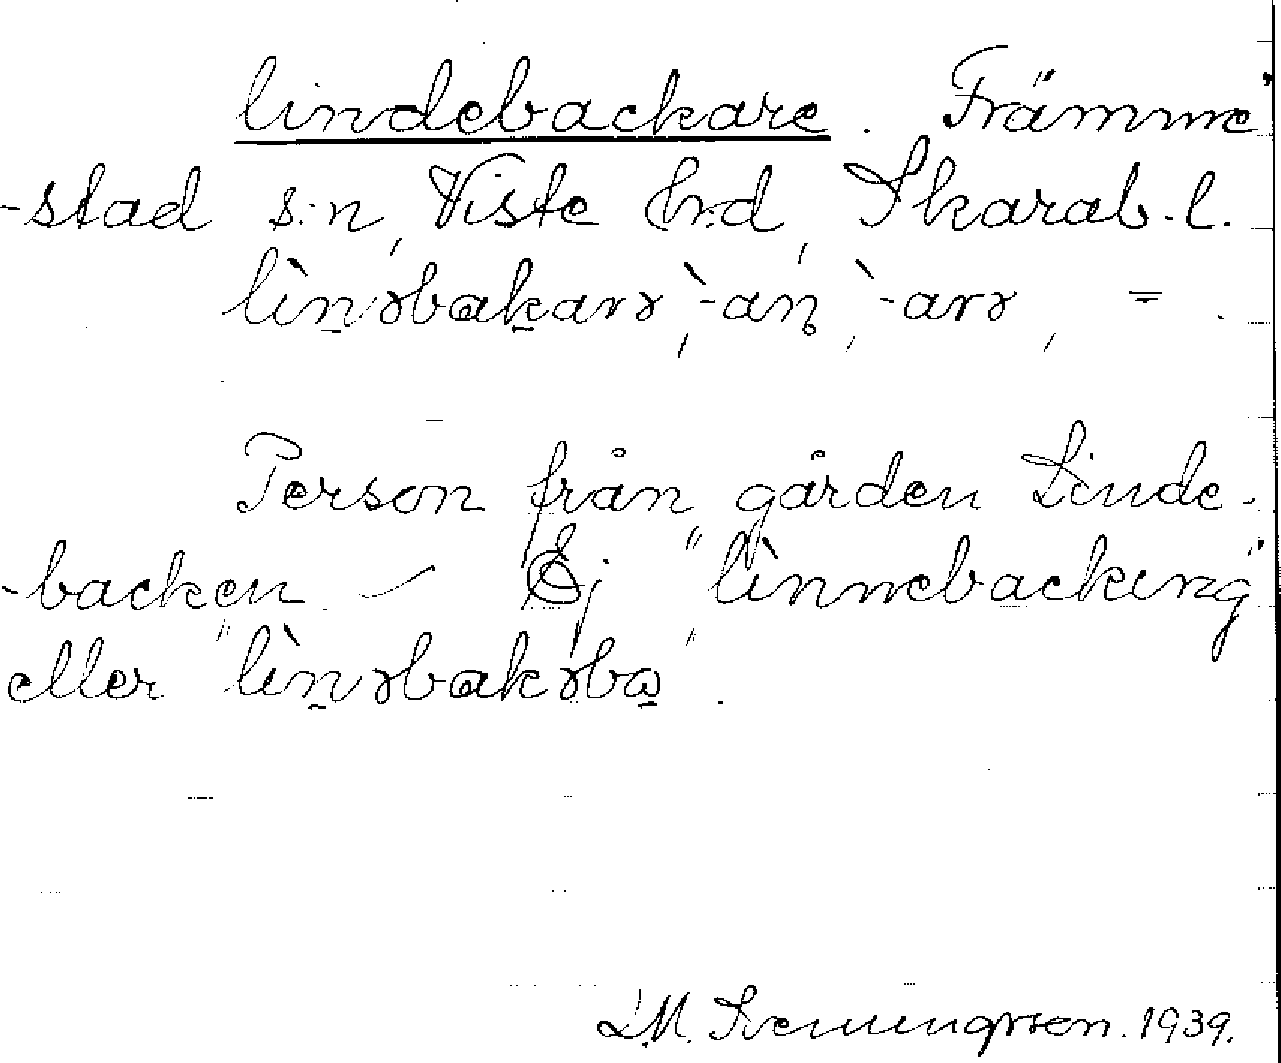 lindebackare. Främme-
-stad s:n, Viste h:d, Skarab. l.
lìnəbakarə, `-an, `-arə, = .
Person från gården Linde-
-backen. – Ej "lìnnebacking"
eller "lìnəbakəba".
L.M. Svenungsson. 1939.